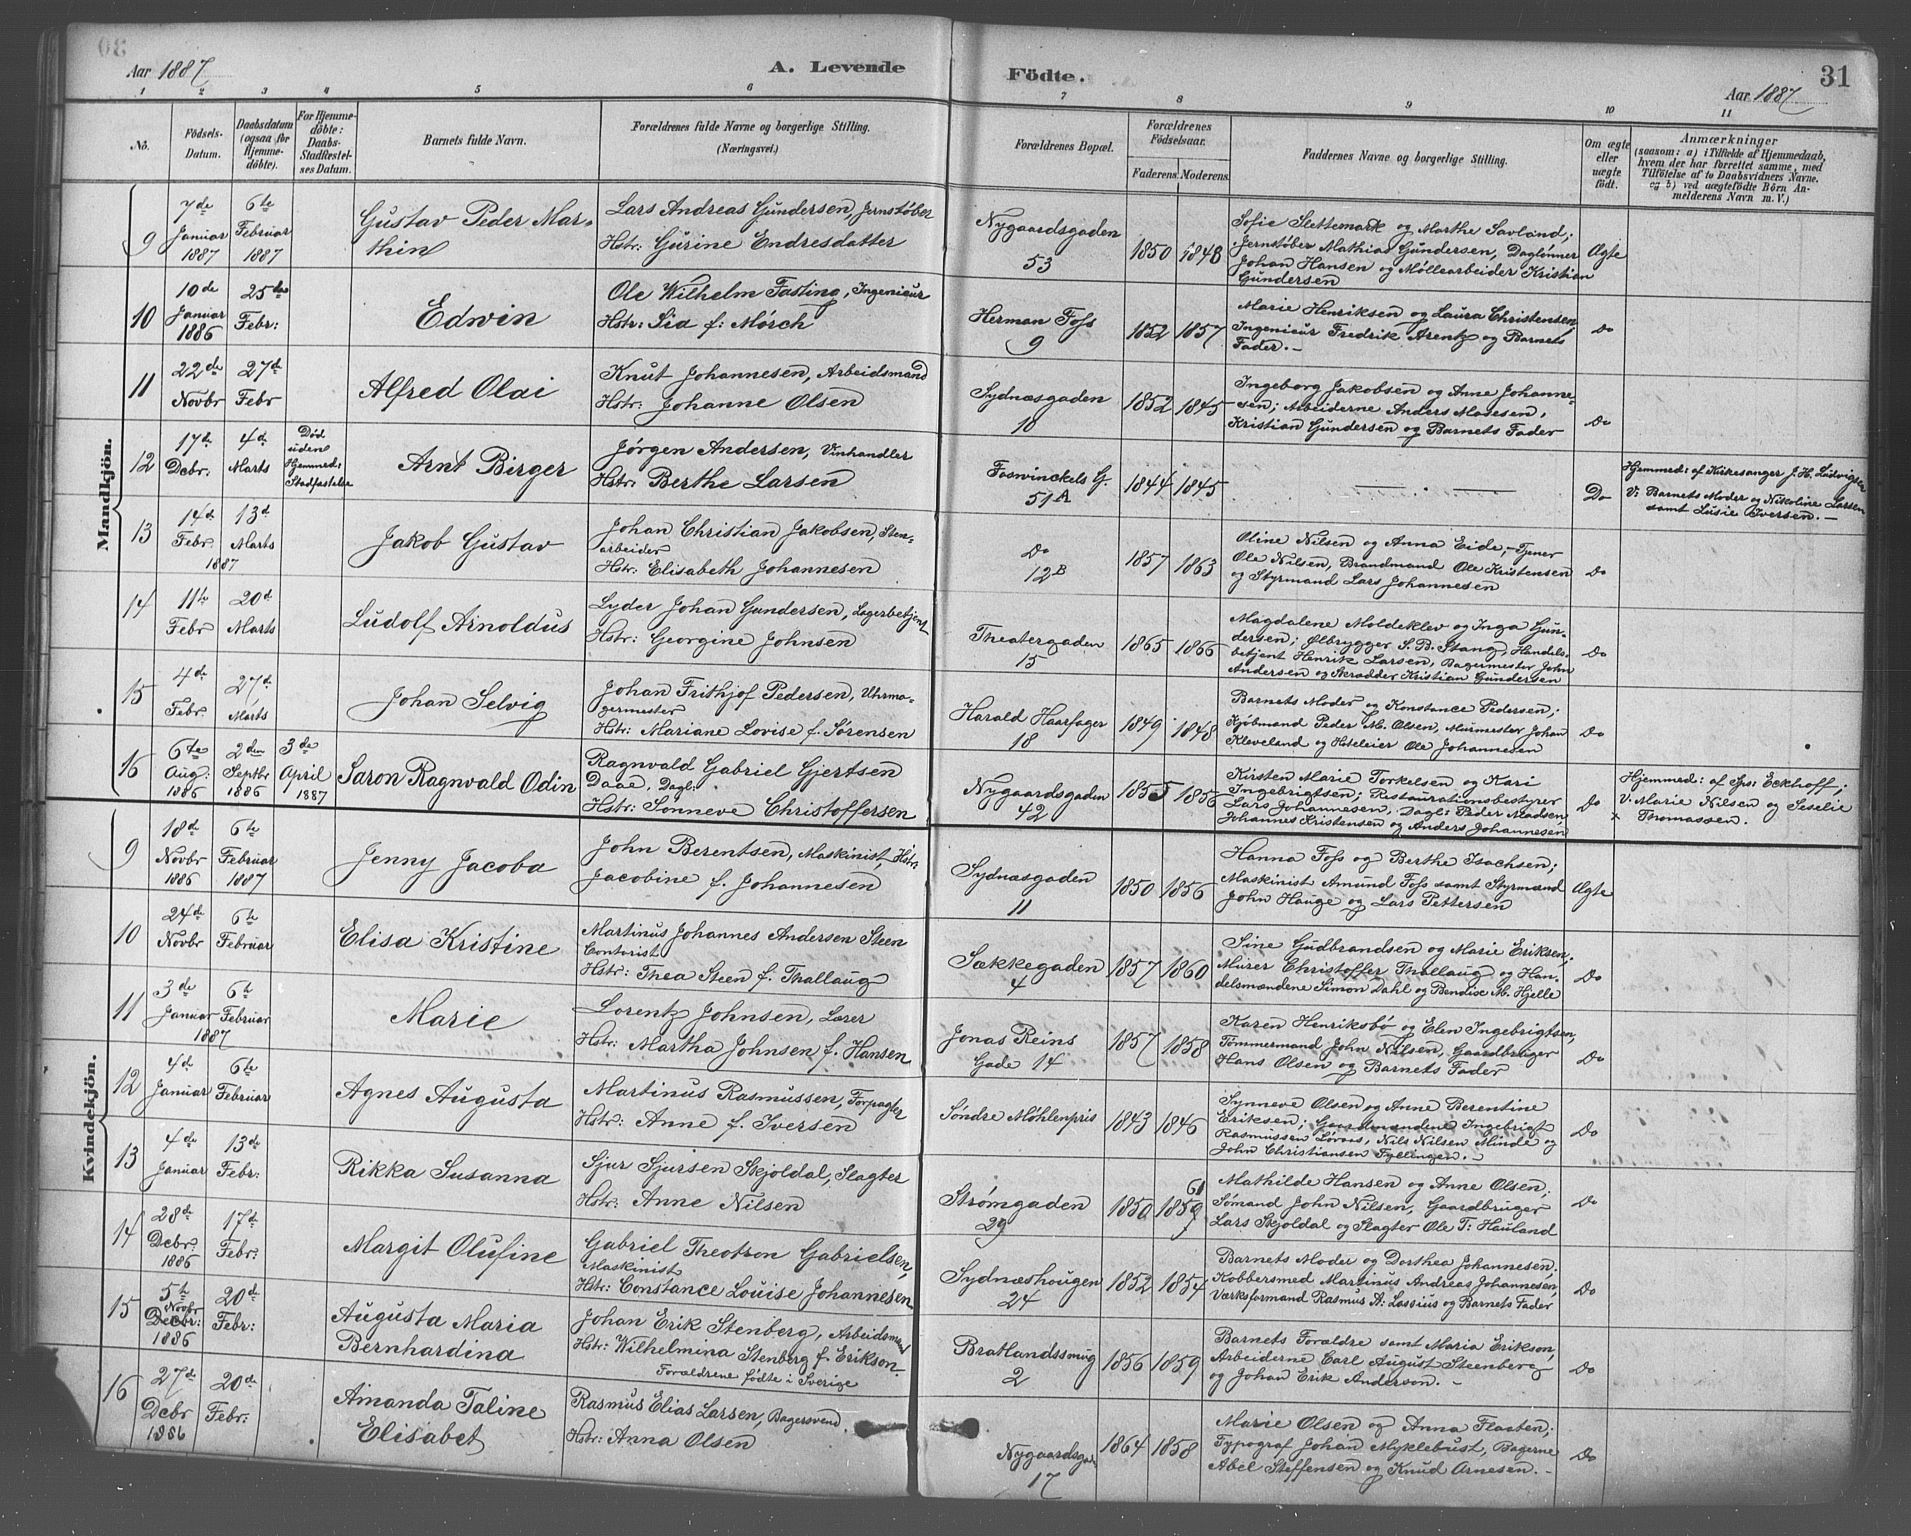 Aar 1887
A. Levende Födte.
Aar 1887
31
1 2 3 4 5 6 7 8 9 10 11
No.
Födsels-Datum.
Daabsdatum (ogsaa for Hjemme-döbte).
For Hjemme-döbte: Daabs-Stadfæstel-ses Datum.
Barnets fulde Navn.
Forældrenes fulde Navne og borgerlige Stilling.
(Næringsvei.)
Forældrenes Bopæl.
Forældrenes Födselsaar.
Faderens. Moderens.
Faddernes Navne og borgerlige Stilling.
Om ægte eller uægte födt.
Anmærkninger
(saasom: a) i Tilfælde af Hjemmedaab, hvem der har forrettet samme, med Tilföielse af to Daabsvidners Navne. og b) ved uægtefödte Börn An-melderens Navn m. V.)
Mandkjön.
9 7de Januar 1887 6te Februar 1887
Gustav Peder Mar-
thin
Lars Andreas Gundersen, Jernstøber
Hstr: Gurine Endresdatter
Nygaardsgaden
53
1850 1848
Sofie Slettemark og Marthe Savland;
Jernstøber Mathias Gundersen, Daglønner
Johan Hansen og Møllearbeider Kristian
Gundersen
Ægte
10 10de Januar 1886 25de Febr:
Edwin
Ole Wilhelm Fasting, Ingenieur
Hstr: Sia f: Mørch
Herman Foss
9
1852 1857
Marie Henriksen og Laura Christensen,
Ingenieur Fredrik Arentz og Barnets
Fader.-
Do
11 22de Novbr 27de Febr
Alfred Olai
Knut Johannesen, Arbeidsmand
Hstr: Johanne Olsen
Sydnæsgaden
10
1852 1845
Ingeborg Jakobsen og Anne Johanne-
sen; Arbeiderne Anders Madsen,
Kristian Gundersen og Barnets Fader
Do
12 17de Decbr: 4d Marts
Død uden Hjemmed: Stadfæstelse
Arnt Birger
Jørgen Andersen, Vinhandler
Hstr: Berthe Larsen
Foswinckels G.
51A
1844 1845
Do
Hjemmed: af Kirkesanger J.H. Ludvigsen
V: Barnets Moder og Nikoline Larsen
samt Lusie Iversen.-
13 14d Febr 1887 13d Marts
Jakob Gustav
Johan Christian Jakobsen, Sten-
arbeider
Hstr: Elisabeth Johannesen
Do
12B
1857 1863
Oline Nilsen og Anna Eide,- Tjener
Ole Nilsen, Brandmand Ole Kristensen
og Styrmand Lars Johannesen
Do
14 11te Febr 20d Marts
Ludolf Arnoldus
Lyder Johan Gundersen, Lagerbetjent
Hstr: Georgine Johnsen
Theatergaden
15
1865 1866
Magdalene Moldeklev og Inga Gun-
dersen; Ølbrygger S. B. Stang, Handels-
betjent Henrik Larsen, Bagermester John
Andersen og Skrædder Kristian Gundersen
Do
15 4de Febr. 27de Marts
Johan Selvig
Johan Frithjof Pedersen, Uhrma-
germester
Hstr: Mariane Lovise f. Sørensen
Harald Haarfager
18
1849 1848
Barnets Moder og Konstance Pedersen;
Kjøbmand Peder M. Olsen, Murmester Johan
Kleveland og Hoteleier Ole Johannesen
Do
16 6te Aug: 1886 2den Septbr 1886 3de April 1887
Saron Ragnvald Odin
Ragnvald Gabriel Gjertsen
Daae, Dagl:
Hstr: Sønneve Christoffersen
Nygaardsgaden
42
1855 1856
Kirsten Marie Torkelsen og Kari
Ingebrigtsen; Restaurationsbestyrer
Lars Johannesen, Dagl: Peder Madsen,
Johannes Kristensen og Anders Johannesen
Do
Hjemmed: af Sps: Eckhoff;
V: Marie Nilsen og Seselie
Thomassen.
Kvindekjön.
9 18de Novbr 1886 6te Februar 1887
Jenny Jacoba
John Berentsen, Maskinist, Hstr:
Jacobine f. Johannesen
Sydnæsgaden
11
1850 1856
Hanna Foss og Berthe Isachsen;
Maskinist Amund Foss samt Styrmænd
John Hauge og Lars Pettersen
Ægte
10 24de Novbr 6te Februar
Elisa Kristine
Martinus Johannes Andersen Steen
Contorist
Hstr: Thea Steen f. Thallaug
Sækkegaden
4
1857 1860
Sine Gudbrandsen og Marie Eriksen;
Murer Christoffer Thallaug og Han-
delsmændene Simon Dahl og Bendix M. Hjelle
Do
11 3de Januar 1887 6te Februar
Marie
Lorentz Johnsen, Lærer
Hstr: Martha Johnsen f. Hansen
Jonas Reins
Gade 14
1857 1858
Karen Henriksbø og Elen Ingebrigtsen,
Tømmermand John Nilsen, Gaardbruger
Hans Olsen og Barnets Fader
Do
12 4d Januar 6te Februar
Agnes Augusta
Martinus Rasmussen, Forpagter
Hstr: Anne f. Iversen
Søndre Møhlenpris
1843 1846
Synneve Olsen og Anne Berentine
Eriksen; Gaardmændene Ingebrigt
Rasmussen Løvaas, Nils Nilsen Minde og
John Christiansen Fyllingen.-
Do
13 4de Januar 13de Febr:
Rikka Susanna
Sjur Sjursen Skjoldal, Slagter
Hstr: Anne Nilsen
Strømgaden
29
1850 1859 61
Mathilde Hansen og Anne Olsen;
Sømand John Nilsen, Gaardbruger
Lars Skjoldal og Slagter Ole T: Hauland
Do
14 28de Decbr. 1886 17de Febr:
Margit Olufine
Gabriel Theotron Gabrielsen,
Maskinist
Hstr: Constance Louise Johannesen
Sydnæshougen
24
1852 1854
Barnets Moder og Dorthea Johannesen;
Kobbersmed Martinus Andreas Johannesen,
Værksformand Rasmus A: Lassius og Barnets Fader
Do
15 5te Novbr Decbr: 1886 20de Febr:
Augusta Maria
Bernhardina
Johan Erik Stenberg, Arbeidsmand
Hstr: Wilhelmina Stenberg f. Erikson.
Forældrene fødte i Sverige
Bratlandssmug
2
1856 1859
Barnets Forældre samt Maria Erikson,
Arbeiderne Carl August Steenberg
og Johan Erik Anderson.-
Do
16 27de Decbr 1886 20de Febr:
Amanda Taline
Elisabet
Rasmus Elias Larsen, Bagersvend
Hstr: Anna Olsen
Nygaardsgad
17
1864 1858
Marie Olsen og Anna Flaaten;
Typograf Johan Myklebust, Bagerne
Abel Steffensen og Knud Arnesen.-
Do